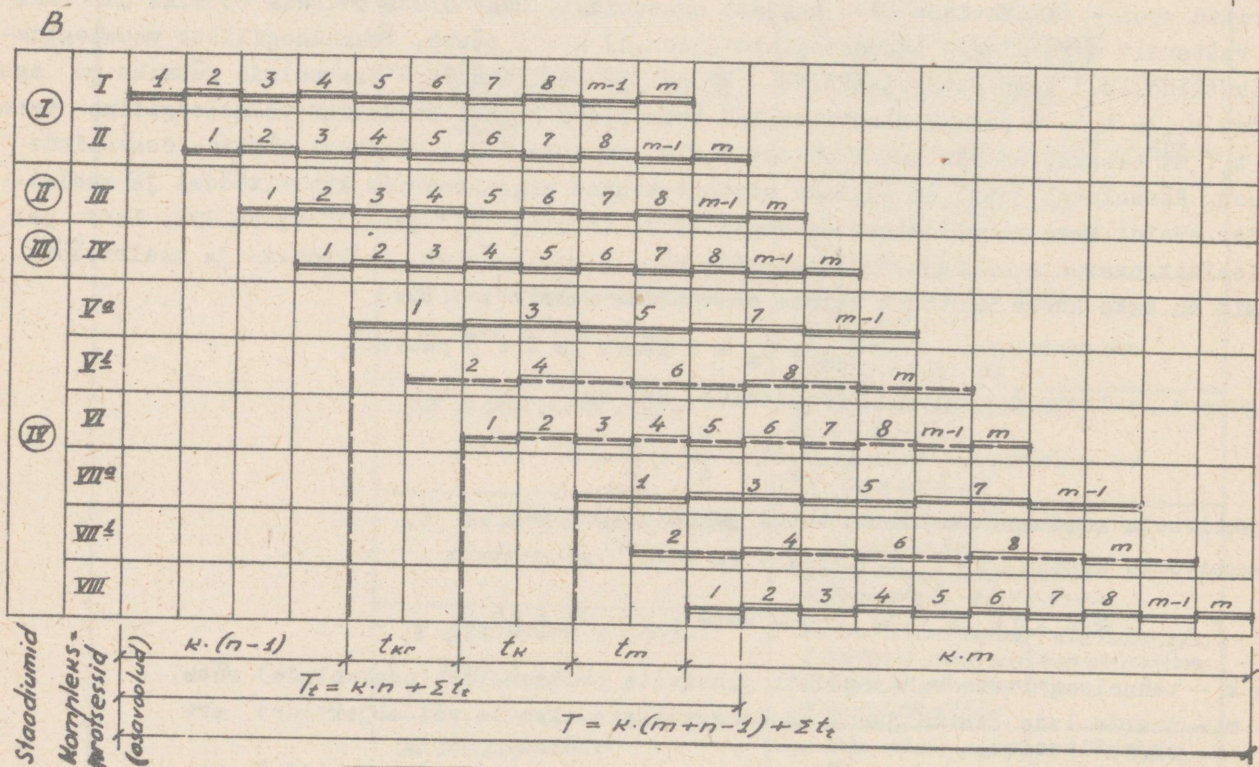 B
I
I 1 2 3 4 5 6 7 8 m-1 m
II 1 2 3 4 5 6 7 8 m-1 m
II III 1 2 3 4 5 6 7 8 m-1 m
III IV 1 2 3 4 5 6 7 8 m-1 m
IV
Vª 1 3 5 7 m-1
V 2 4 6 8 m
VI 1 2 3 4 5 6 7 8 m-1 m
VIIª 1 3 5 7 m-1
VII 2 4 6 8 m
VIII 1 2 3 4 5 6 7 8 m-1 m
Staadiumid
Kompleks=
protsessid
(osavolud)
κ·(n-1) tκr tκ tm κ·m
Tt = κ·n + Σtt
T = κ·(m+n-1) + Σtt